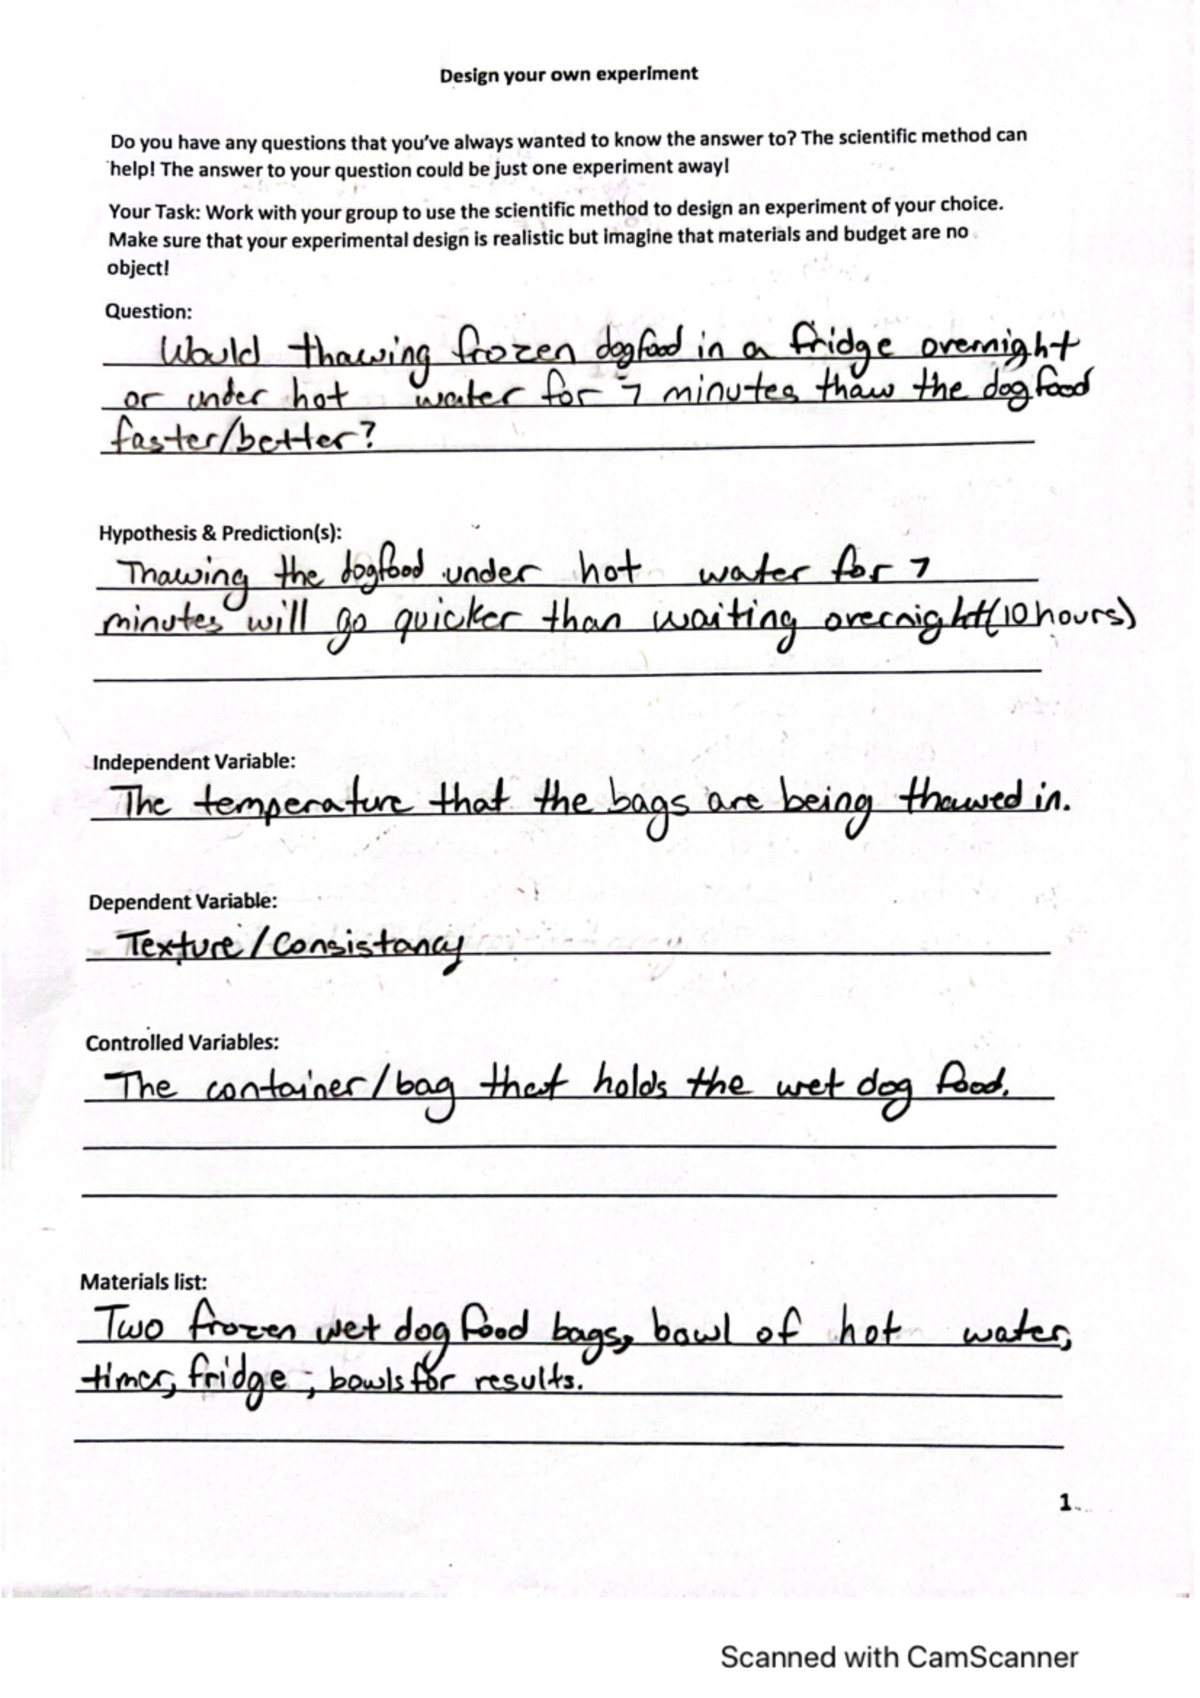 Design your own experiment
Do you have any questions that you've always wanted to know the answer to? The scientific method can
help! The answer to your question could be just one experiment away!
Your Task: Work with your group to use the scientific method to design an experiment of your choice.
Make sure that your experimental design is realistic but imagine that materials and budget are no
object!
Question:
Would thawing frozen dogfood in a fridge overnight
or under hot water for 7 minutes thaw the dogfood
faster/better?
Hypothesis & Prediction(s):
Thawing the dogfood under hot water for 7
minutes will go quicker than waiting overnight (10 hours)
Independent Variable:
The temperature that the bags are being thawed in.
Dependent Variable:
Texture/Consistancy
Controlled Variables:
The container/bag that holds the wet dog food.
Materials list:
Two frozen wet dog food bags, bowl of hot water,
timer, fridge, bowls for results.
1.
Scanned with CamScanner